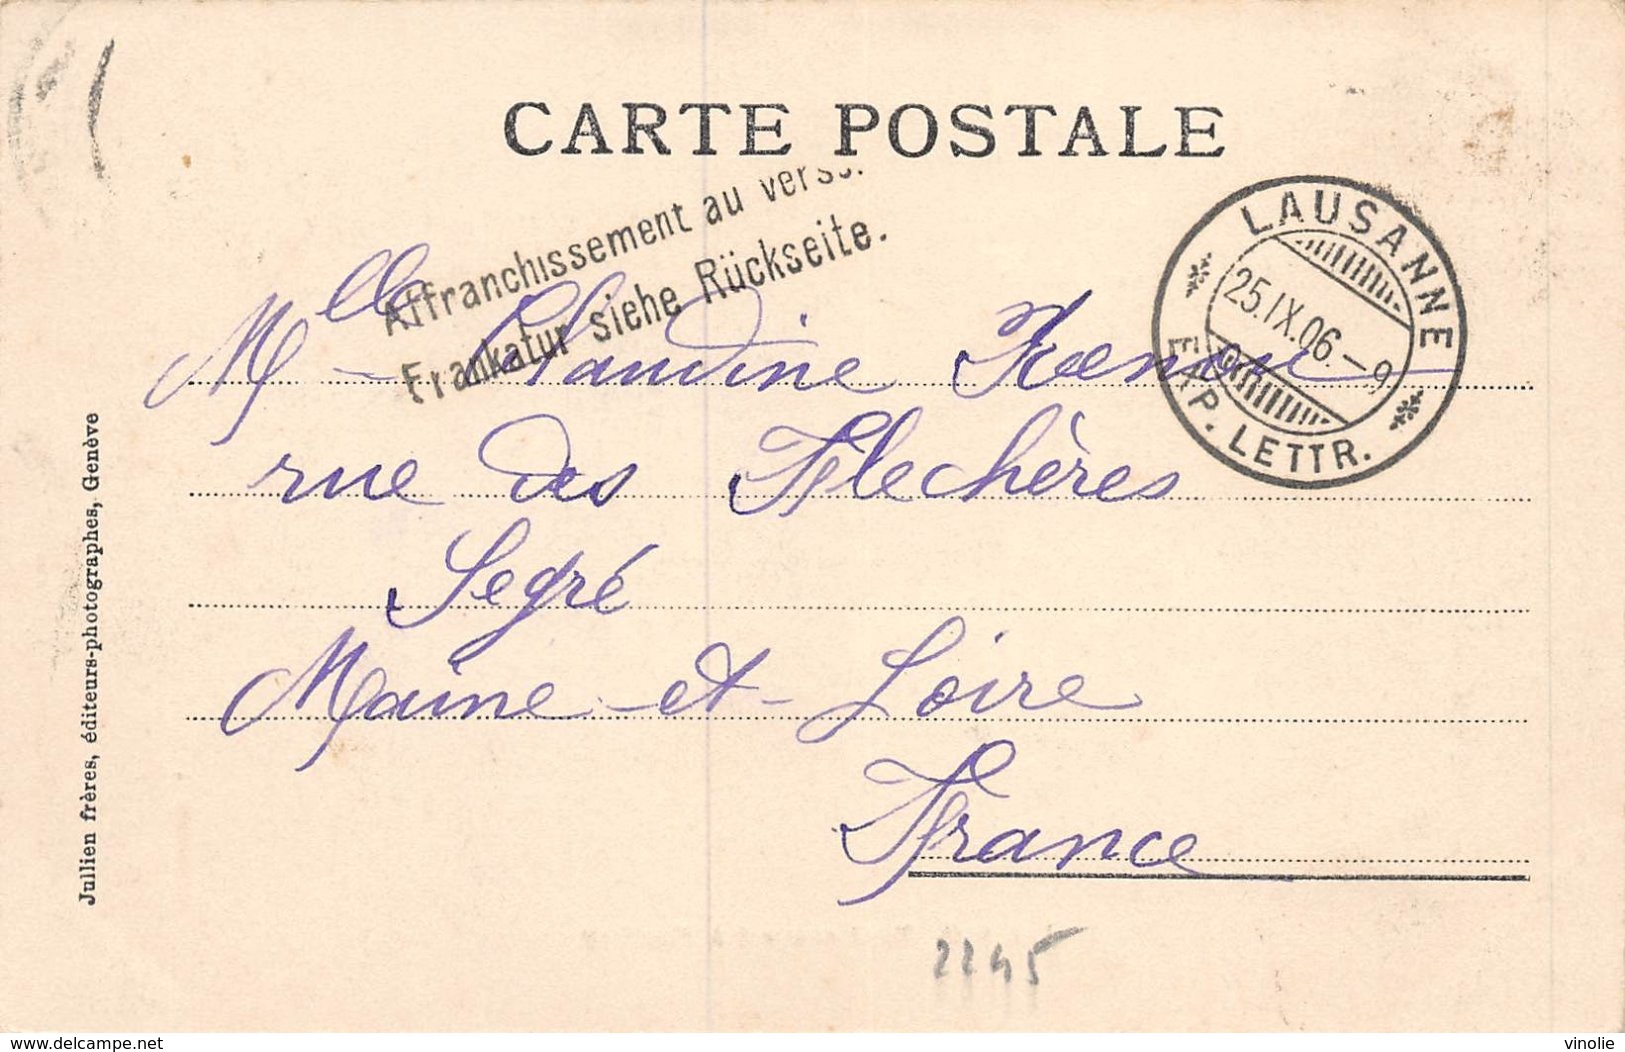 CARTE POSTALE
Affranchissement au verso.
Frankatur siehe Rückseite.
LAUSANNE
25.IX.06.-9
EXP. LETTR.
Mlle Claudine
rue des Flechères
Segré
Maine-et-Loire
France
Julllen frères, éditeurs-photographes, Genève
2245
delcampe.net
vinolie